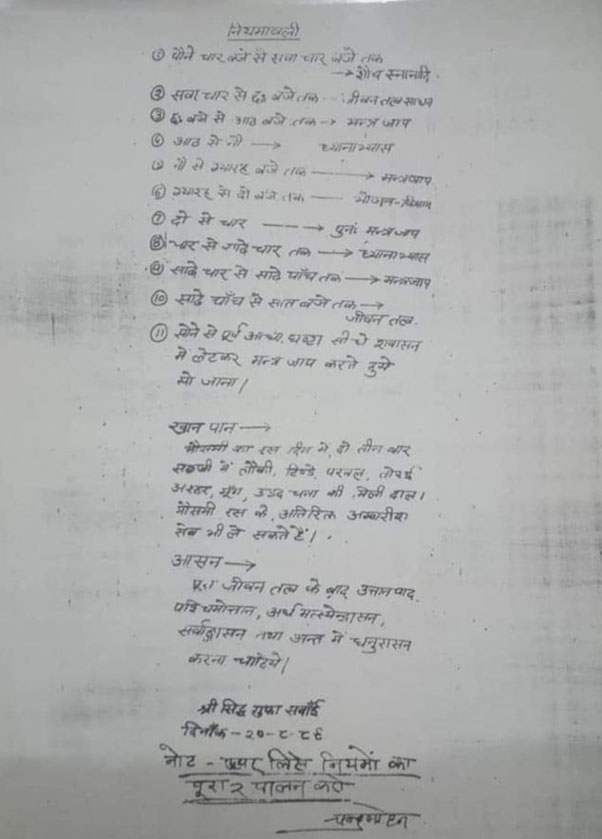 नियमावली
① पौने चार बजे से सवा चार बजे तक
→ शौच स्नानादि.
② सवा चार से छः बजे तक - जीवन तत्व साधन
③ छः बजे से आठ बजे तक → मन्त्र जाप
④ आठ से नौ → ध्यानाभ्यास
⑤ नौ से ग्यारह बजे तक → मन्त्रजाप
⑥ ग्यारह से दो बजे तक — भोजन-विश्राम
⑦ दो से चार → पुनः मन्त्रजाप
⑧ चार से साढे चार तक → ध्यानाभ्यास
⑨ साढे चार से साढे पाँच तक → मन्त्रजाप
⑩ साढे पाँच से सात बजे तक →
जीवन तत्व.
⑪ सोने से पूर्व आधा घण्टा सीधे शवासन
में लेटकर मन्त्र जाप करते हुये
सो जाना।
खान पान →
मौसमी का रस दिन में, दो तीन बार
सब्जी में लौकी, टिण्डे, परवल, तोरई
अरहर, मूँग, उड़द चना की, मिली दाल।
मौसमी रस के, अतिरिक्त
सेब भी ले सकते हैं।
आसन →
जीवन तत्व के बाद उत्तानपाद,
पश्चिमोत्तान, अर्धमत्स्येन्द्रासन,
सर्वाङ्गासन तथा अन्त में धनुरासन
करना चाहिये।
श्री सिद्ध गुफा सवाँई
दिनाँक - २०-८-८६
नोट - ऊपर लिखे नियमों का
पूरा २ पालन करें
चन्द्रमोहन